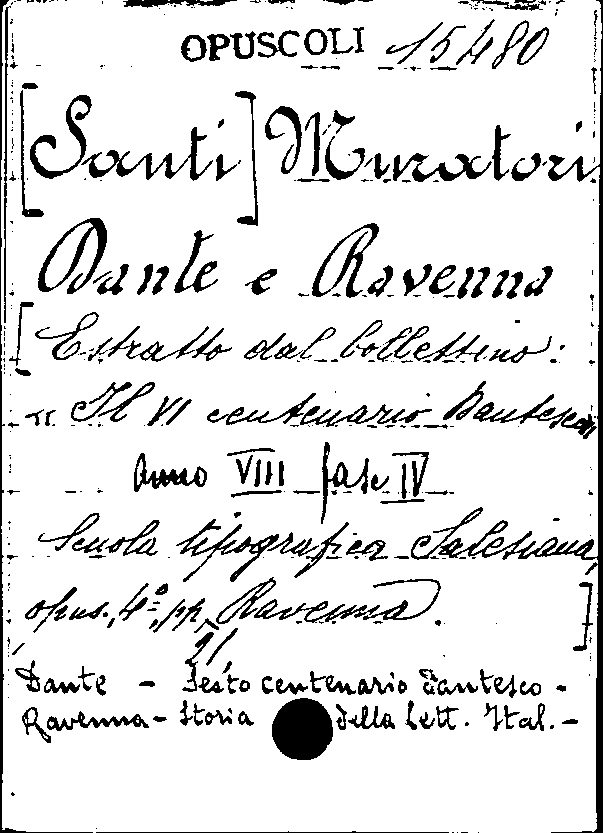 OPUSCOLI 15480
[Santi] Muratori
Dante e Ravenna
[Estratto dal bollettino:
"Il VI centenario Dantesco"
Anno VIII fasc IV
Scuola tipografica Salesiana,
opus., 4º, pp. 21, Ravenna.]
Dante - Sesto centenario dantesco -
Ravenna - Storia della Lett. Ital. -